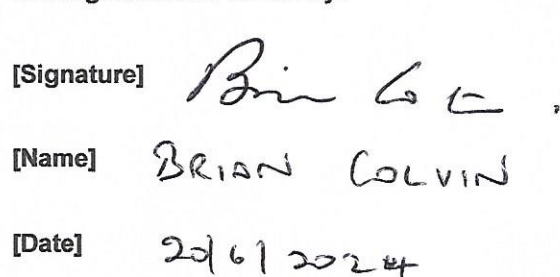 [Signature] Brian
[Name] BRIAN COLVIN
[Date] 20/6/2024